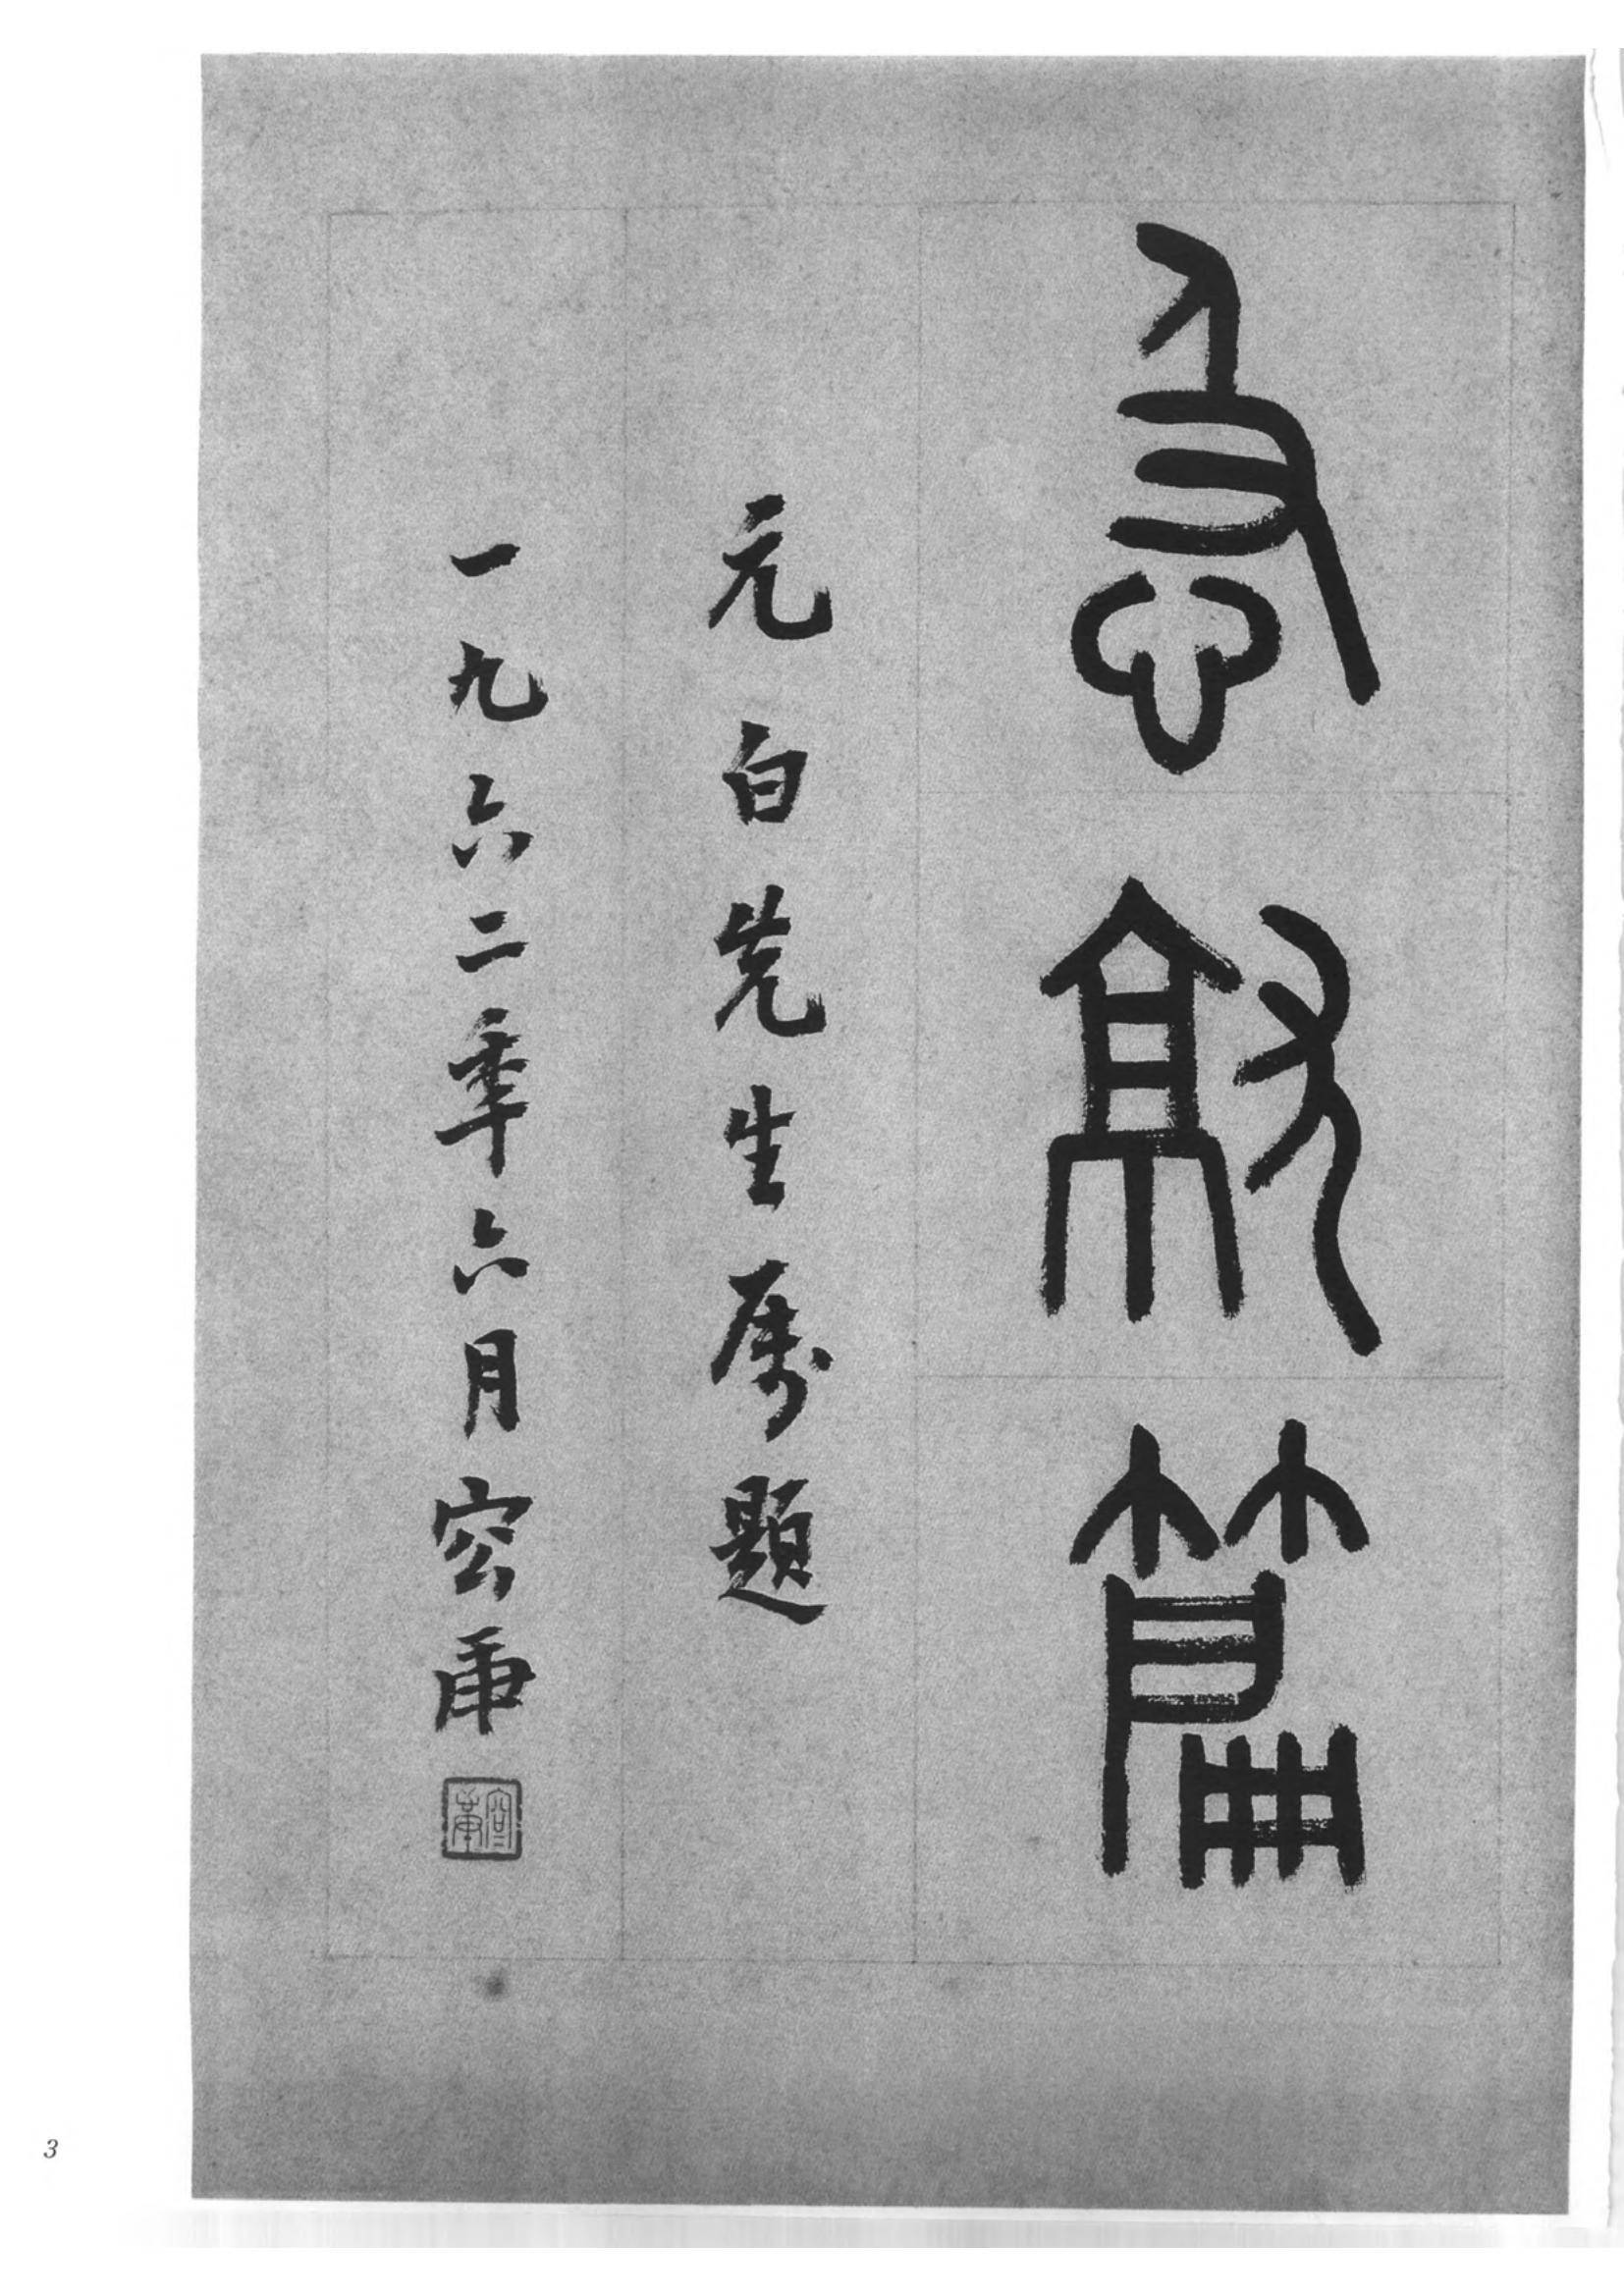 急就篇
元白先生属題
一九六二秊六月容庚
容庚
3